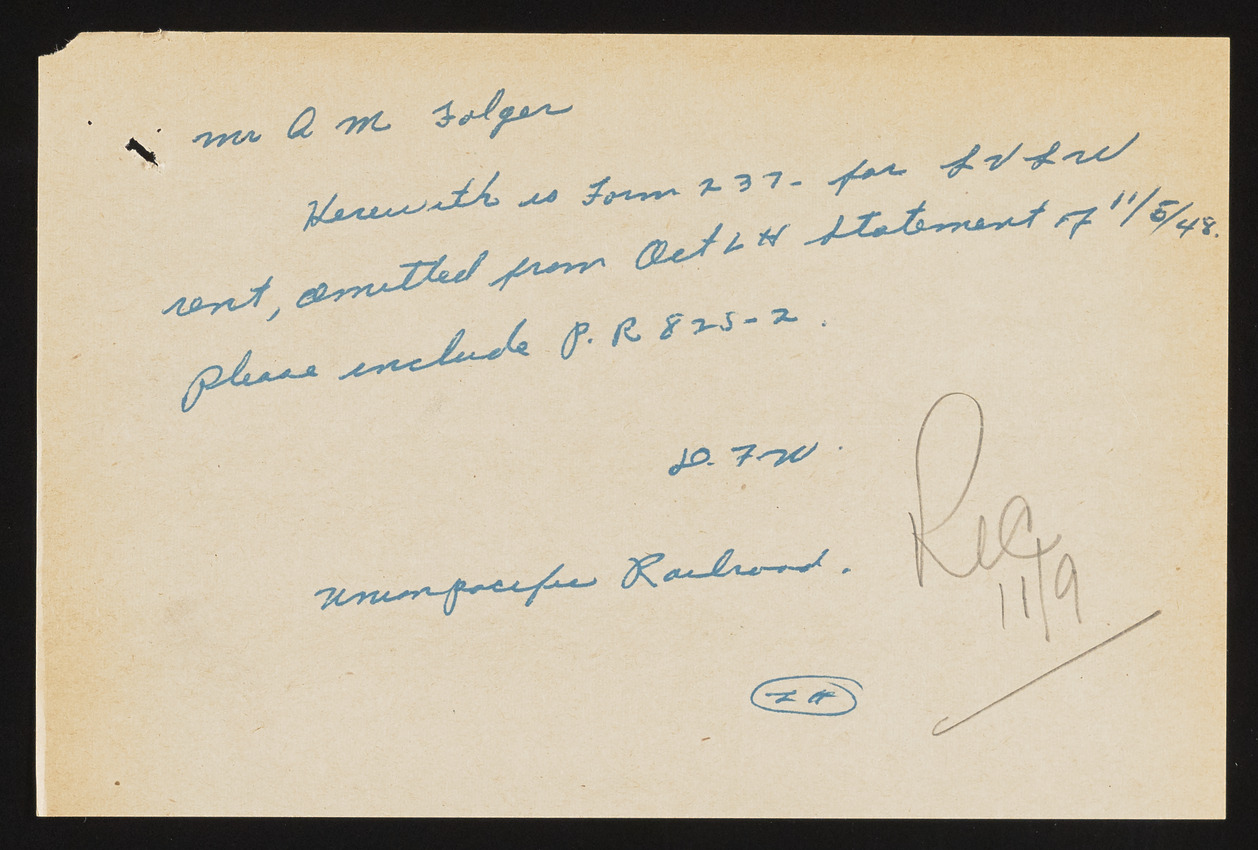 Mr A M Folger
Herewith is Form 237- for L V L W
rent, omitted from Oct L H Statement of 11/5/48.
Please include P. R 825-2.
D. F. W.
Union pacific Railroad.
Rec
11/9
L H